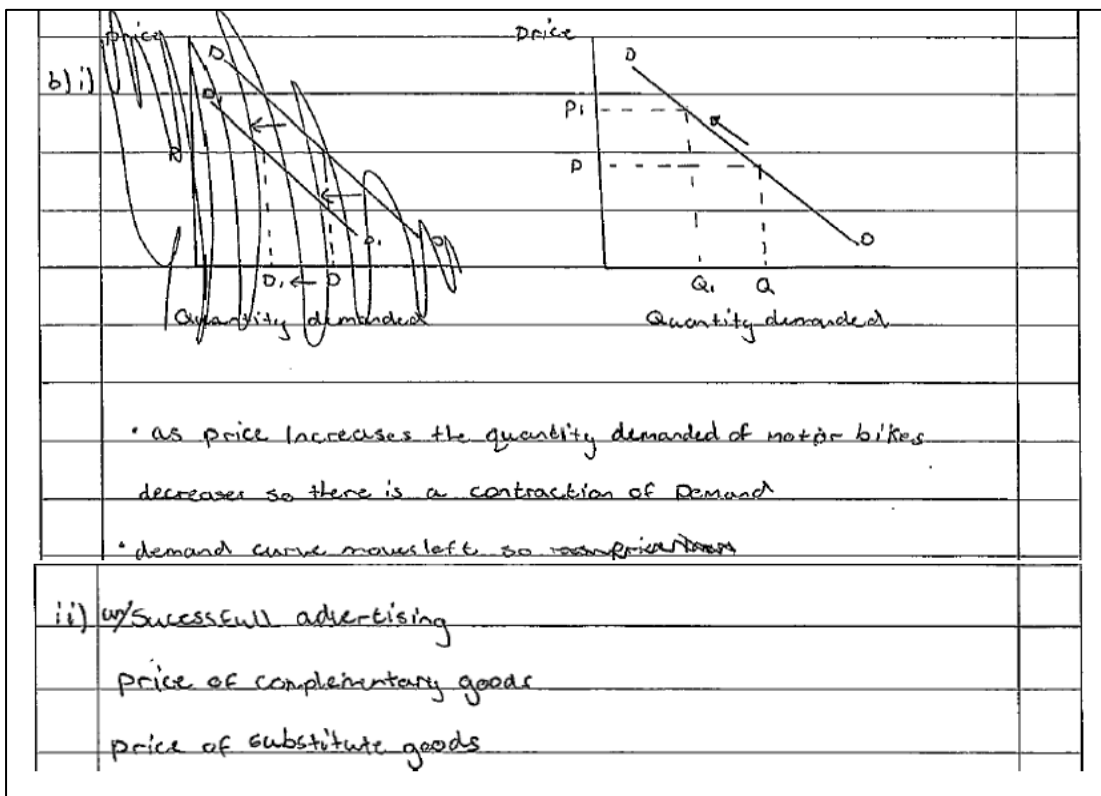 b) i)
price
D
D₁
D₁
D
D₁ ← D
Quantity demanded
Price
D
P₁
P
D
Q₁ Q
Quantity demanded
• as price increases the quantity demanded of motor bikes
decreases so there is a contraction of Demand
• demand curve moves left so
ii) Sucessfull advertising
price of complementary goods
price of substitute goods